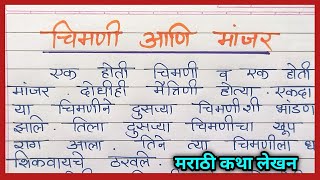 चिमणी आणि मांजर
एक होती चिमणी व एक होती
मांजर . दोघीही मैत्रिणी होत्या . एकदा
या चिमणीने दुसऱ्या चिमणीशी भांडण
झाले . तिला दुसऱ्या चिमणीचा खूप
राग आला . तिने त्या चिमणीला ध
शिकवायचे ठरवले .
मराठी कथा लेखन